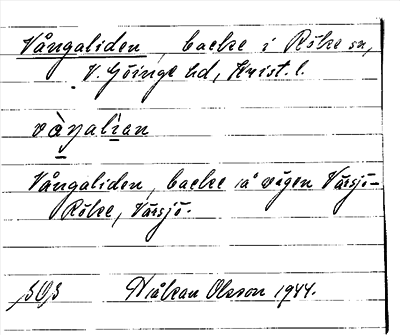 Vångaliden, backe i Röke sn,
V. Göinge hd, Krist. l.
vàŋalìan
Vångaliden, backe på vägen Värsjö-
Röke, Värsjö.
Håkan Olsson 1944.